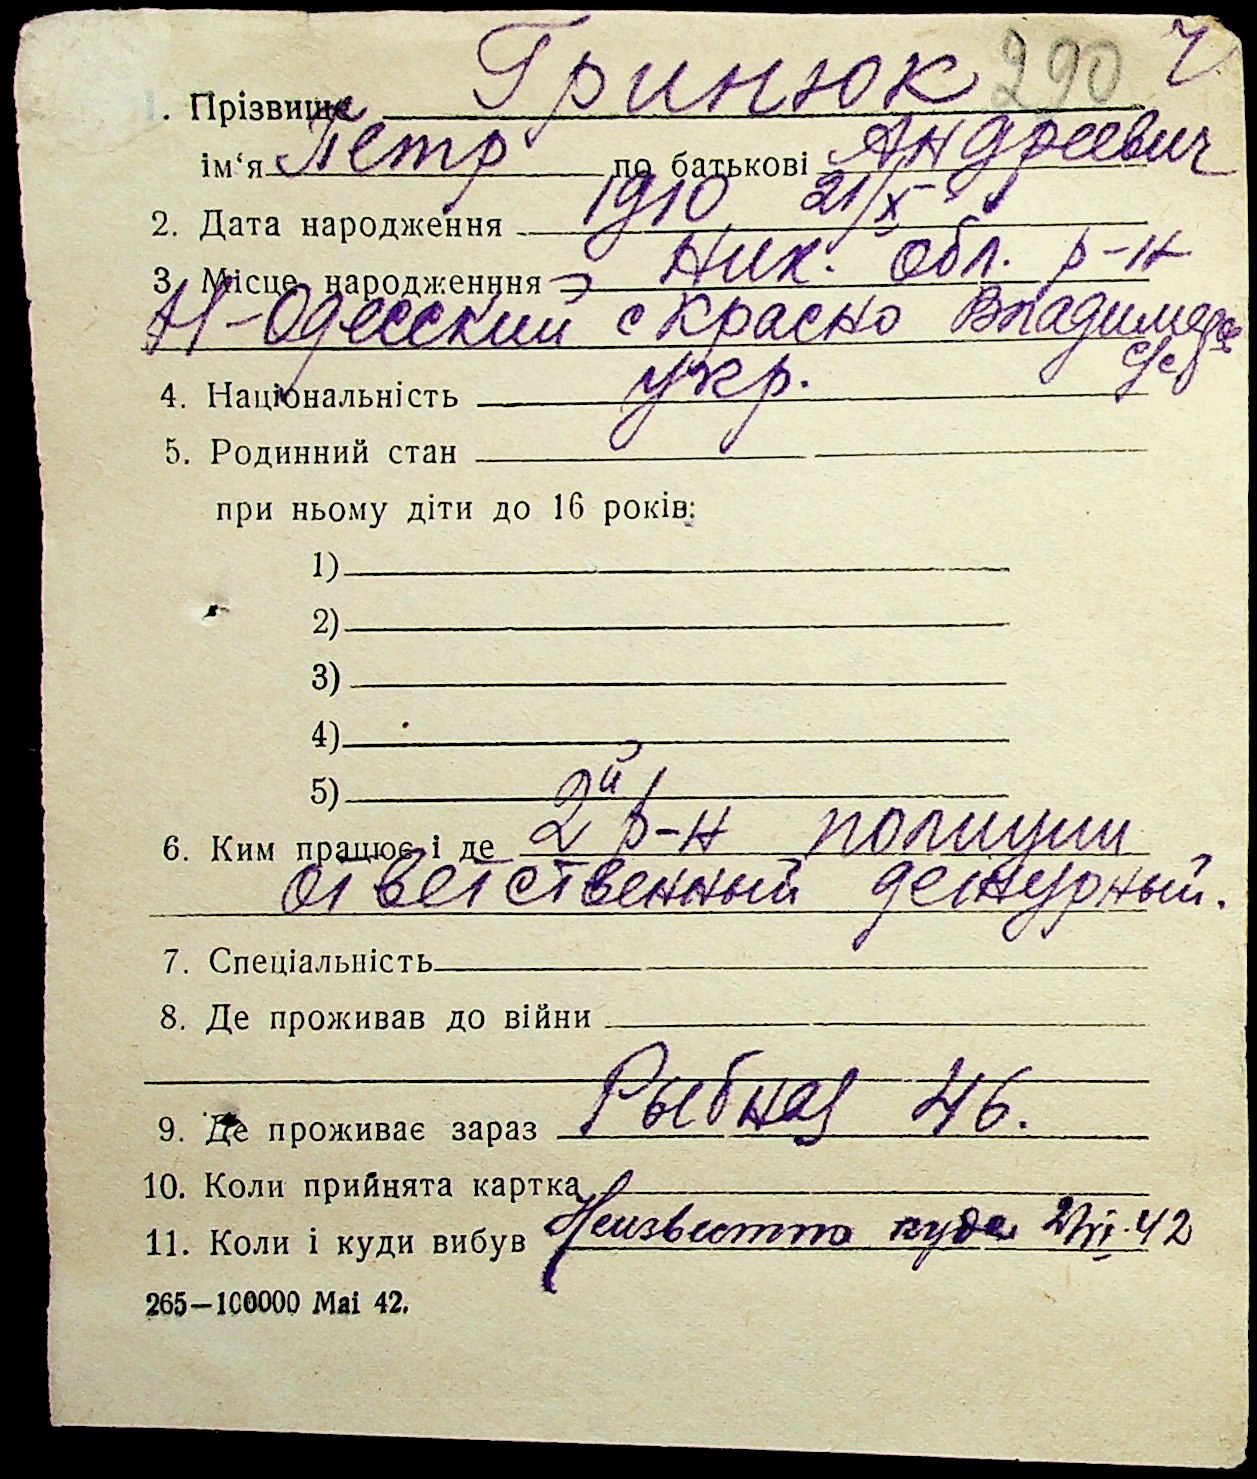 Гринюк 290
1. Прізвище
ім'я Петр по батькові Андреевич
2. Дата народження 1910 21/X
3. Місце народженння Ник. обл. р-н
Н-Одесский с Красно Владимиров
с/с
4. Національність укр.
5. Родинний стан
при ньому діти до 16 років:
1)
2)
3)
4)
5)
6. Ким працює і де 2й р-н полиции
ответственный дежурный.
7. Спеціальність
8. Де проживав до війни
9. Де проживає зараз Рыбная 46.
10. Коли прийнята картка
11. Коли і куди вибув Неизвестно куда 42
265—100000 Mai 42.